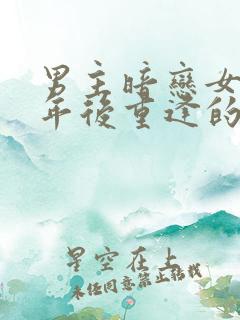 男主暗戀女
年後重逢的
星空在上
未經同意禁止轉載